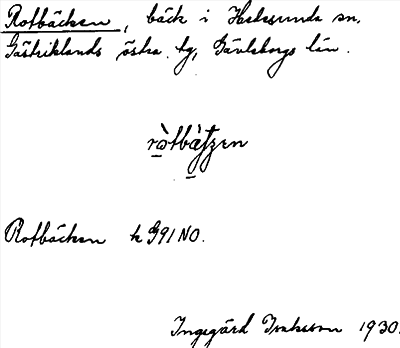 Rotbäcken, bäck i Hedesunda sn,
Gästriklands östra tg, Gävleborgs län.
rò̱tbä̱tʃen
Rotbäcken k G91 NO.
Ingegärd Isaksson 1930.